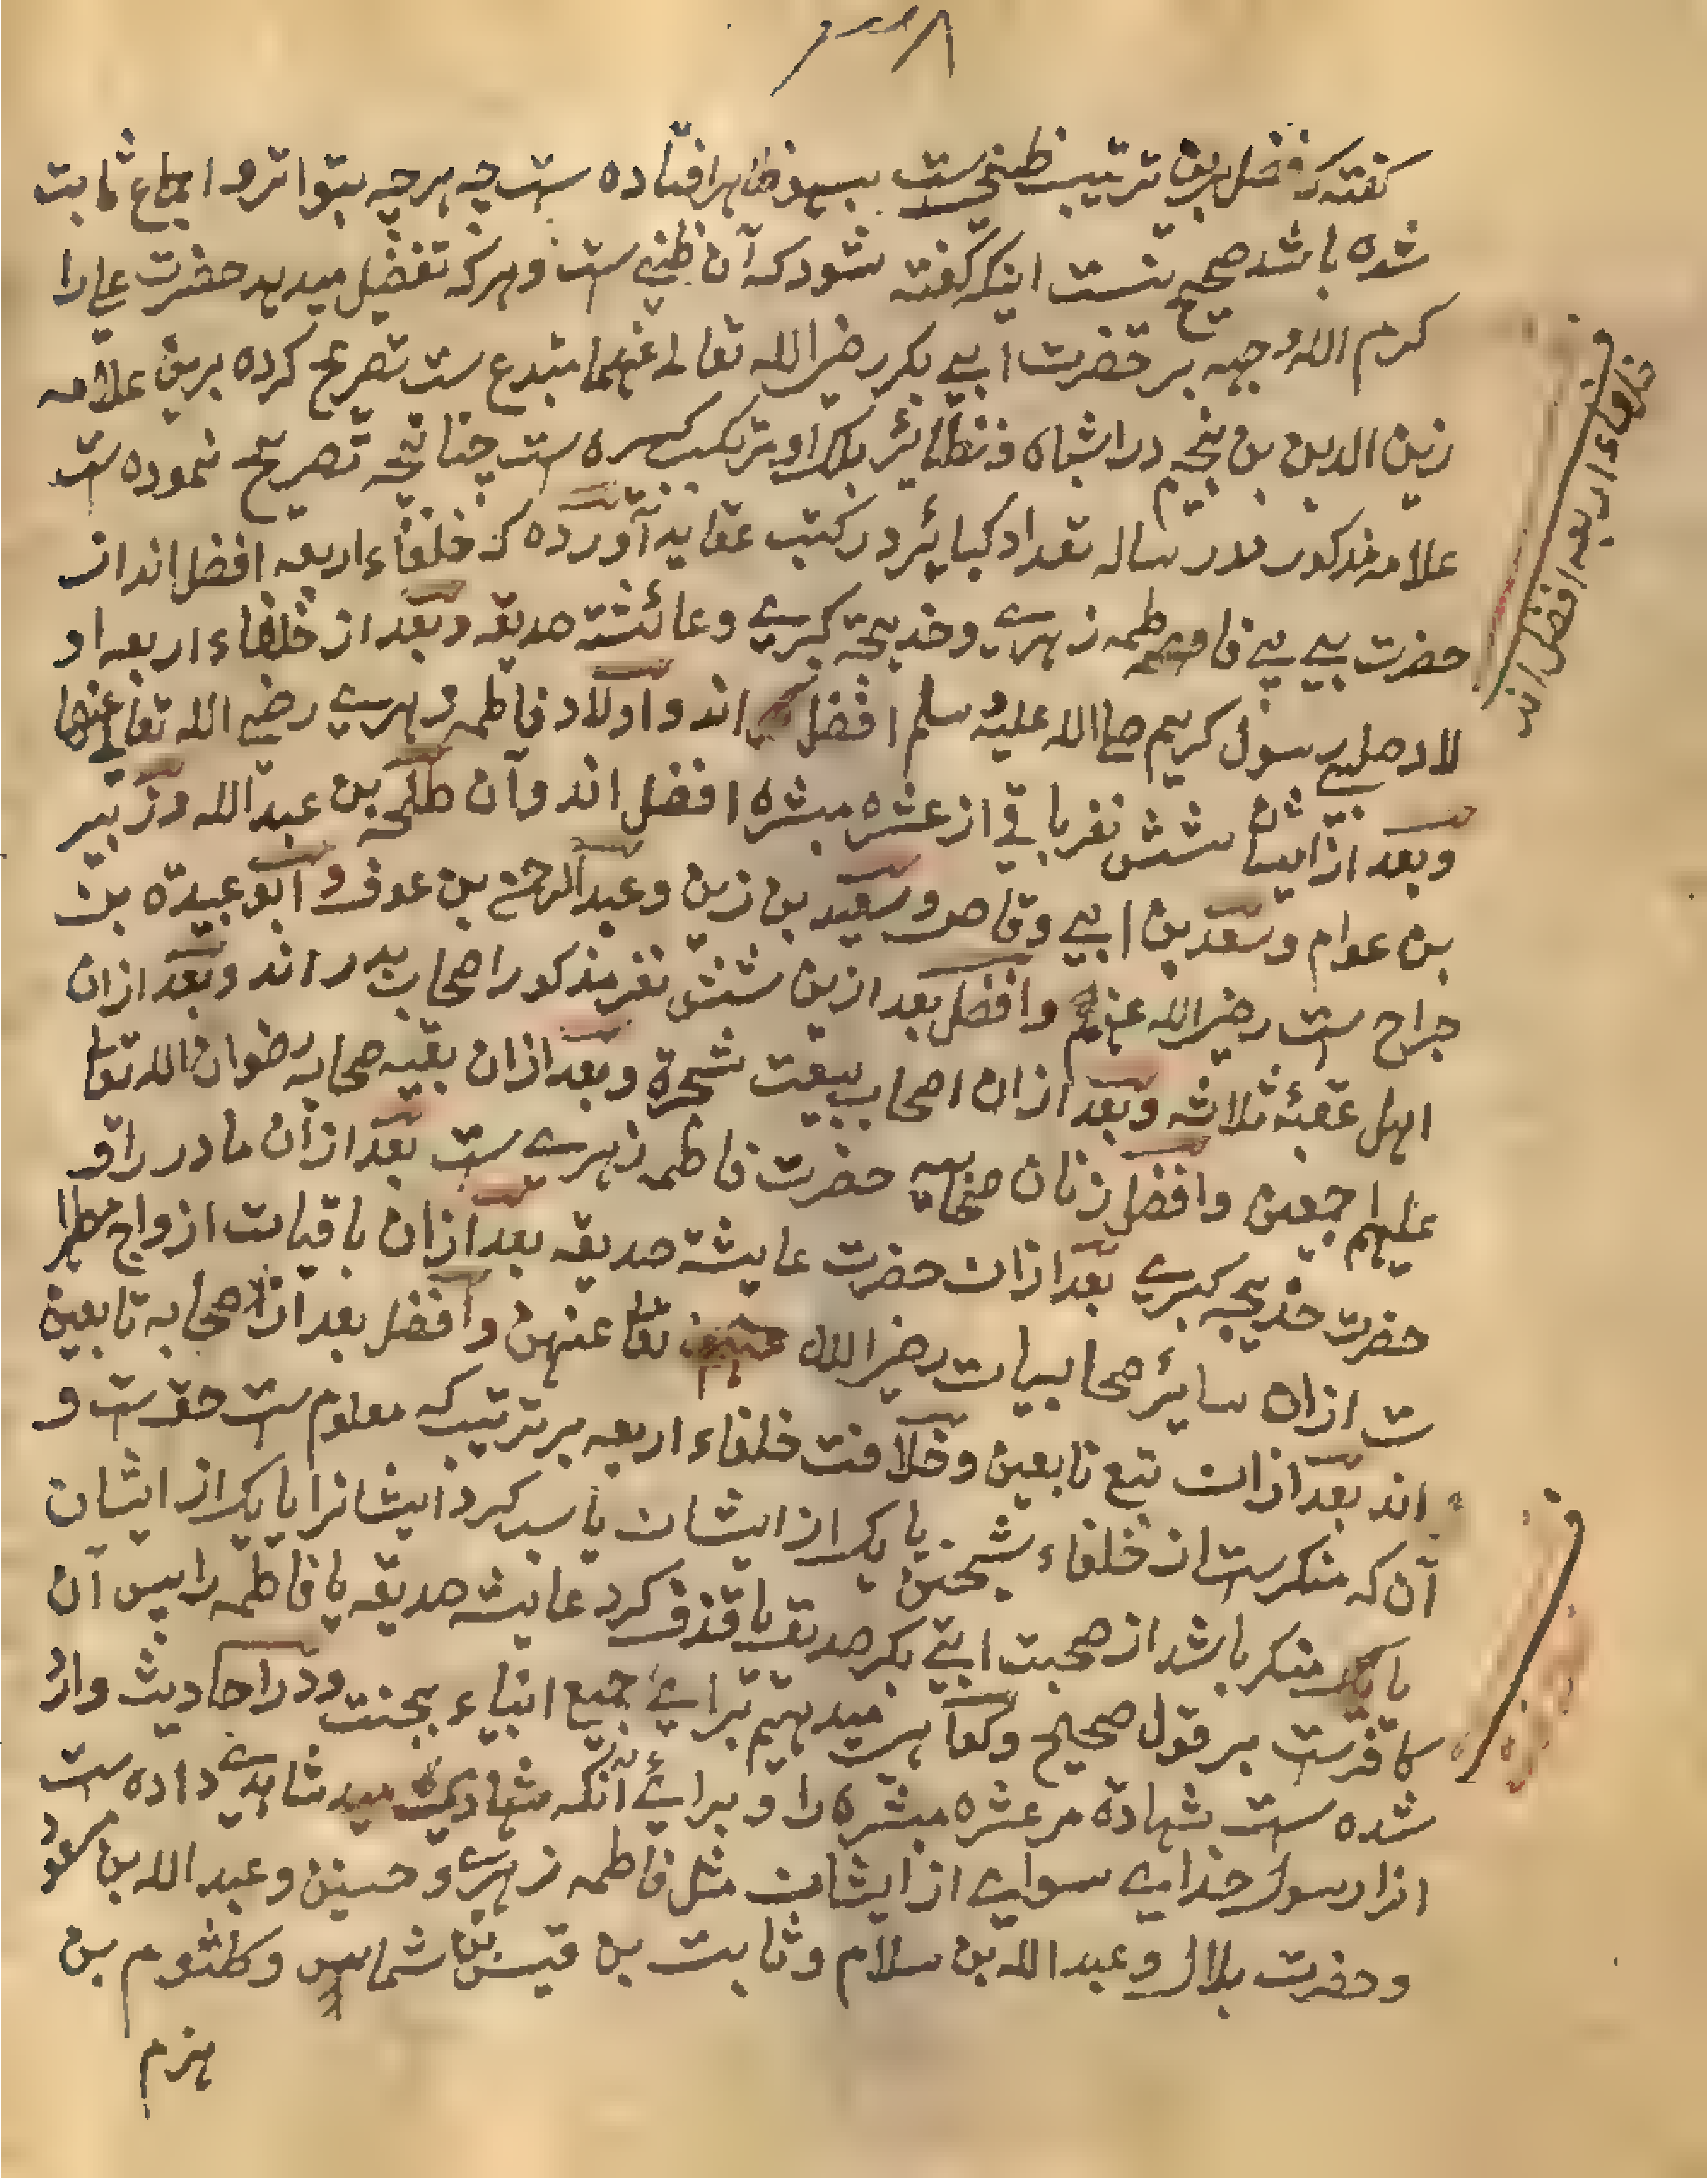 گفته که فضل برین ترتیب ظنی ست بسهو ظاهر افتاده ست چه هرچه بتواتر و اجماع ثابت
شده باشد صحیح نیست اینکه گفته شود که آن ظنی ست و هرکه تفضیل میدهد حضرت علی را
کرم الله وجهه بر حضرت ابی بکر رضی الله تعالی عنهما مبتدع ست تصریح کرده برین علامه
زین الدین بن نجیم در اشباه و نظائر بلکه او مرتکب کبیره ست چنانچه تصریح نموده ست
علامه مذکور در رساله تعداد کبائر در کتب عقاید آورده که خلفاء اربعه افضل اند از
حضرت بی بی فاطمه زهری و خدیجة کبری و عائشة صدیقه و بعد از خلفاء اربعه او
لاد صلبی رسول کریم صلی الله علیه و سلم افضل اند و اولاد فاطمه زهری رضی الله تعالی عنها
و بعد از ایشان شش نفر باقی از عشره مبشره افضل اند و آن طلحه بن عبد الله و زبیر
بن عوام و سعد بن ابی وقاص و سعید بن زین و عبد الرحمن بن عوف و ابو عبیده بن
جراح ست رضی الله عنهم و افضل بعد ازین شش نفر مذکور اصحاب بدر اند و بعد ازان
اهل عقبهٔ ثلاثه و بعد ازان اصحاب بیعت شجرة و بعد ازان بقیه صحابه رضوان الله تعا
علیهم اجمعین و افضل زنان صحابیه حضرت فاطمه زهری ست بعد ازان مادر او
حضرت خدیجه کبری بعد ازان حضرت عایشة صدیقه بعد ازان باقیات ازواج مطهرا
ت ازان سائر صحابیات رضی الله تعا عنهن و افضل بعد از صحابه تابعین
اند بعد ازان تبع تابعین و خلافت خلفاء اربعه بر ترتیب که معلوم ست حق ست و
آن که منکر ست از خلفاء شیخین یا یکی از ایشان یا سب کرد ایشانرا یا یکی از ایشان
یا منکر باشد از صحبت ابی بکر صدیق یا قذف کرد عایشه صدیقه یا فاطمه را پس آن
کافر ست بر قول صحیح و گواهی میدهیم برای جمیع انبیاء بجنت و در احادیث وارد
شده ست شهادة مر عشره مبشره را و برای آنکه شاهدی داده ست
انرا رسول خدای سوای از ایشان مثل فاطمه زهری و حسنین و عبد الله بن مسعود
و حضرت بلال و عبد الله بن سلام و ثابت بن قیس بن شماس و کلثوم بن
هزم
خلفاء اربعه افضل اند